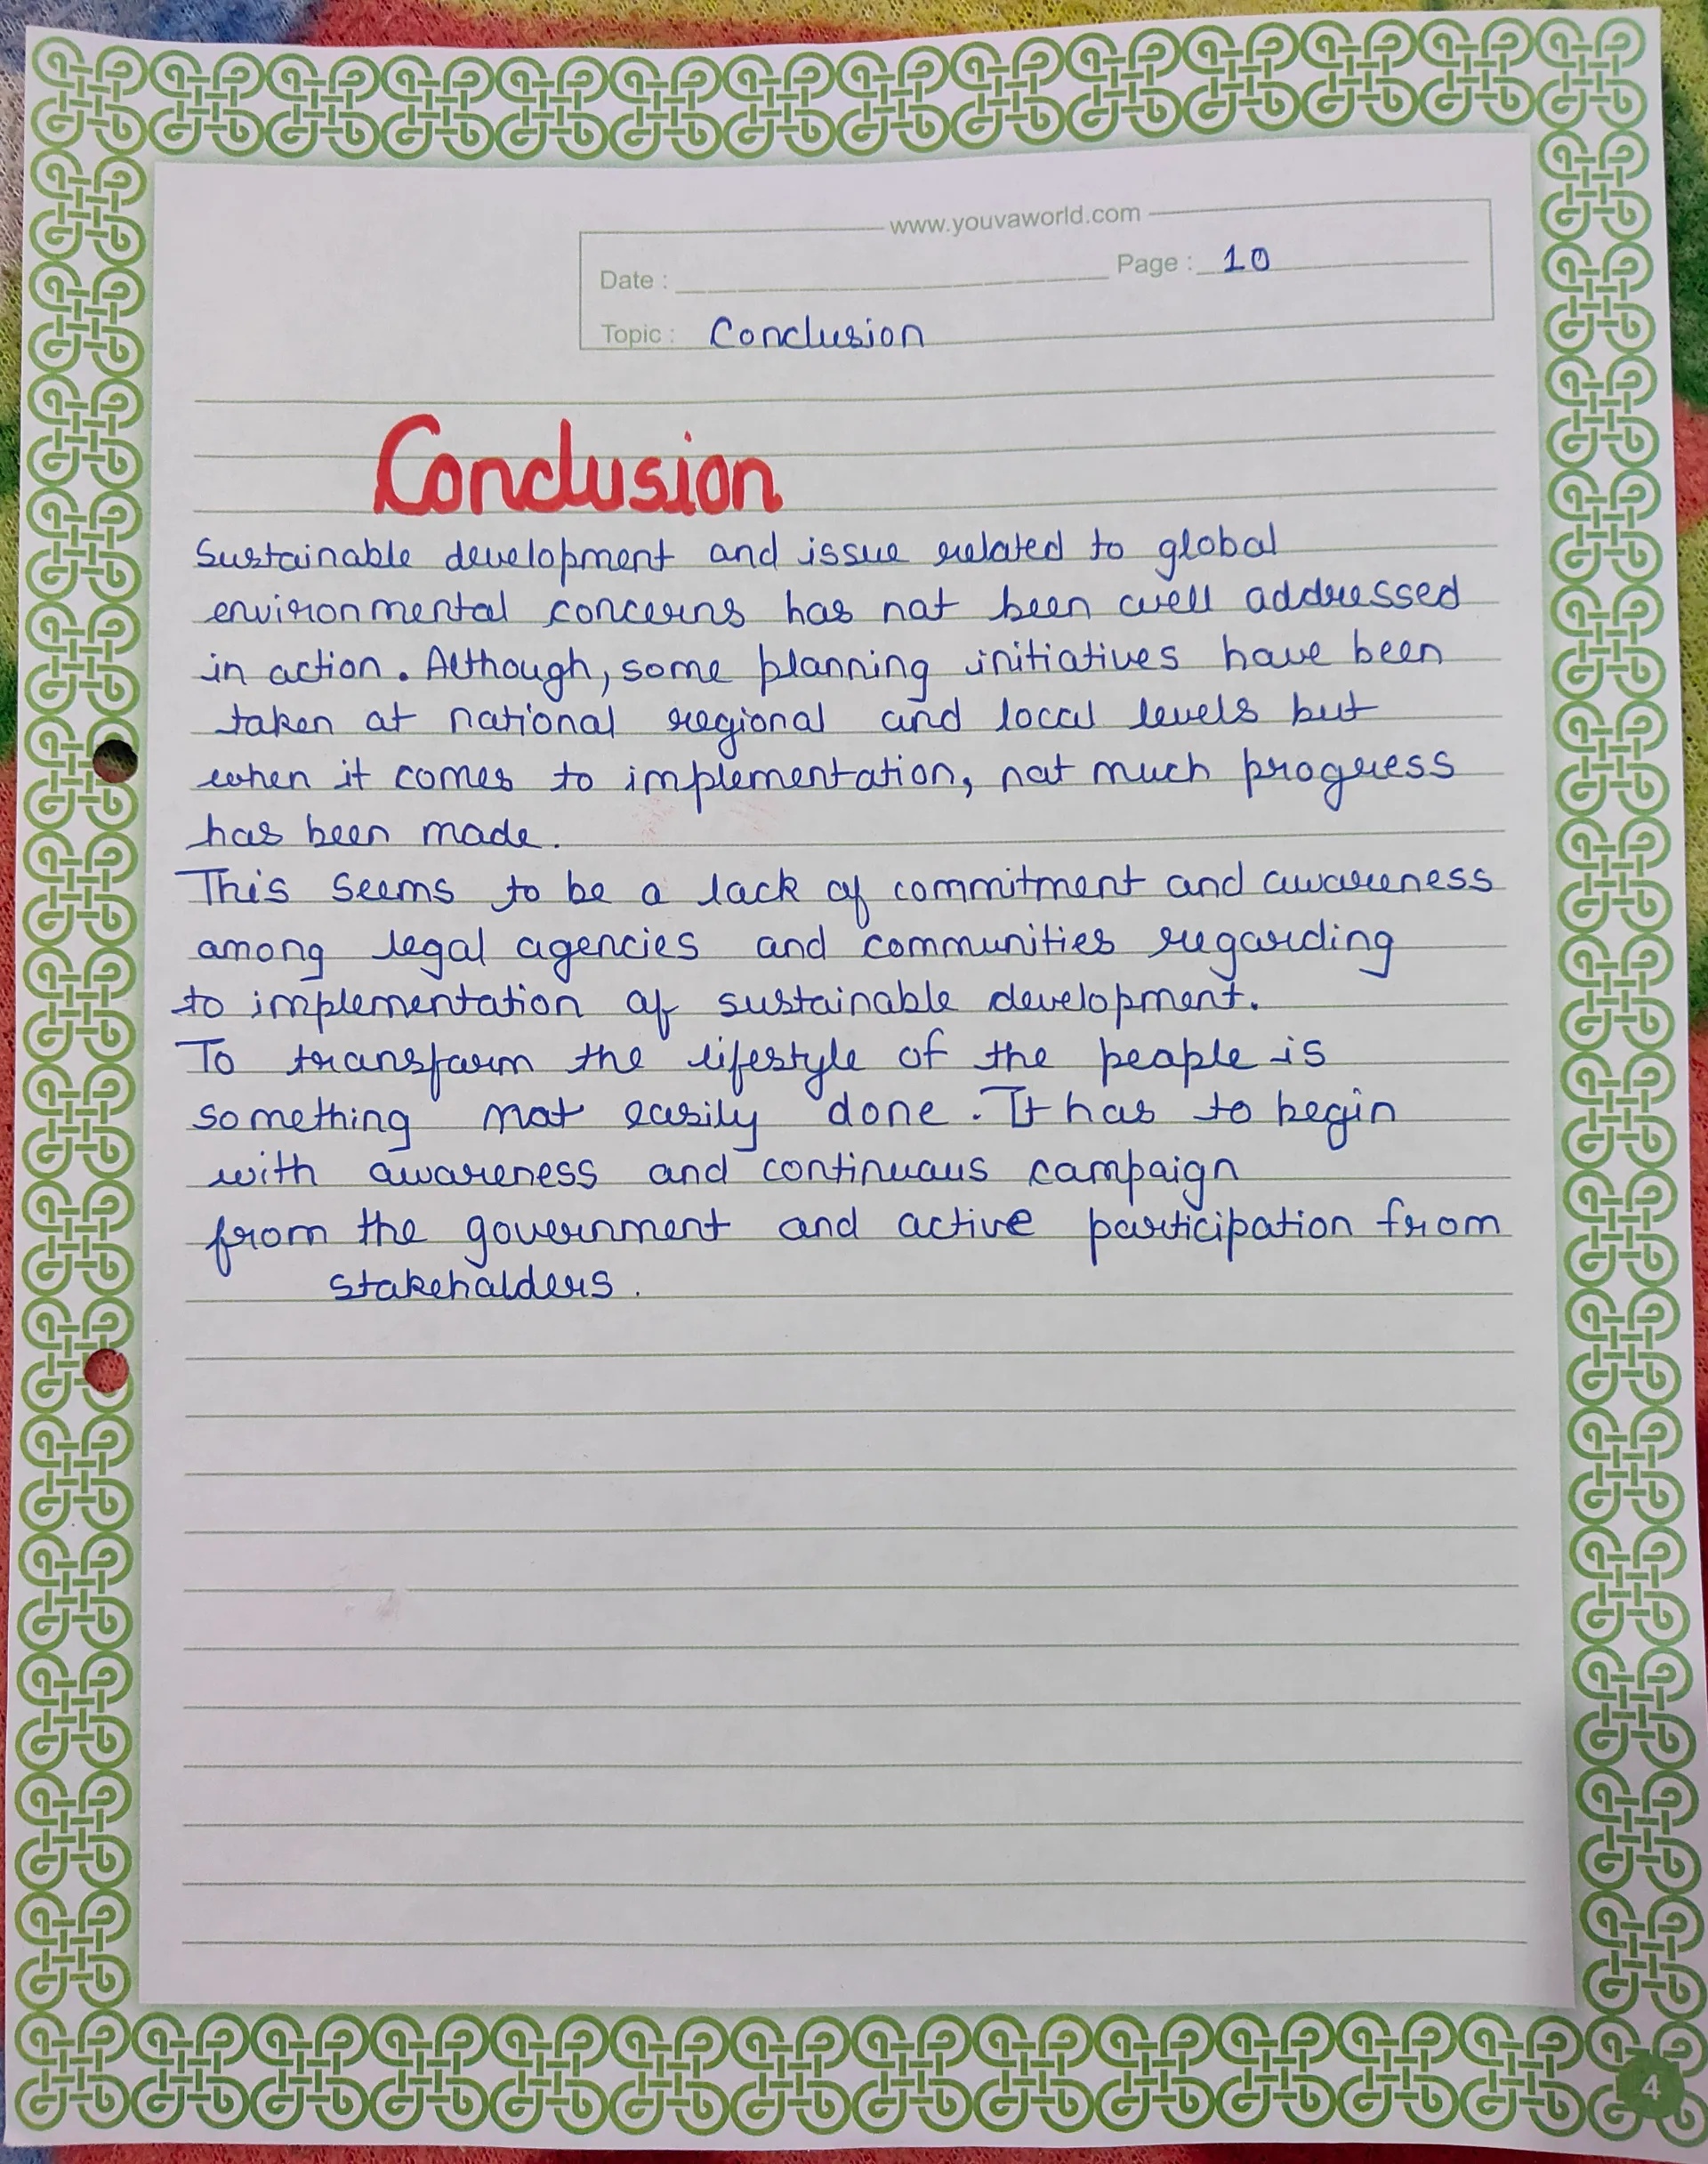 www.youvaworld.com
Date : Page : 10
Topic : Conclusion
Conclusion
Sustainable development and issue related to global
environmental concerns has not been well addressed
in action. Although, some planning initiatives have been
taken at national regional and local levels but
when it comes to implementation, not much progress
has been made.
This seems to be a lack of commitment and awareness
among legal agencies and communities regarding
to implementation of sustainable development.
To transform the lifestyle of the people is
something not easily done. It has to begin
with awareness and continuous campaign
from the government and active participation from
stakeholders.
4